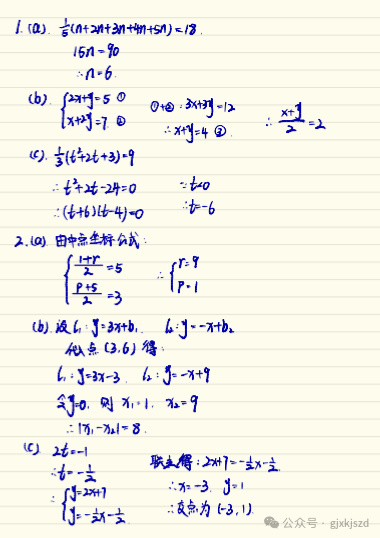 1. (a). 1/5(n+2n+3n+4n+5n)=18.
15n=90
∴n=6.
(b). { 2x+y=5 ①
x+2y=7. ②
①+②: 3x+3y=12
∴x+y=4 ③.
∴ (x+y)/2 = 2
(c). 1/3(t²+2t+3)=9
∴t²+2t-24=0
∴(t+6)(t-4)=0
∵t<0
∴t=-6
2. (a) 由中点坐标公式:
{ (1+r)/2 =5
(p+5)/2 =3
∴ { r=9
p=1
(b) 设l₁: y=3x+b₁. l₂: y=-x+b₂
代点(3,6)得:
l₁: y=3x-3. l₂: y=-x+9
令y=0, 则 x₁=1, x₂=9
∴|x₁-x₂|=8.
(c) 2t=-1
∴t=-1/2
∴ { y=2x+7
y=-1/2x-1/2.
联立得: 2x+7=-1/2x-1/2.
∴x=-3, y=1
∴交点为(-3,1).
公众号 · gjxkjszd